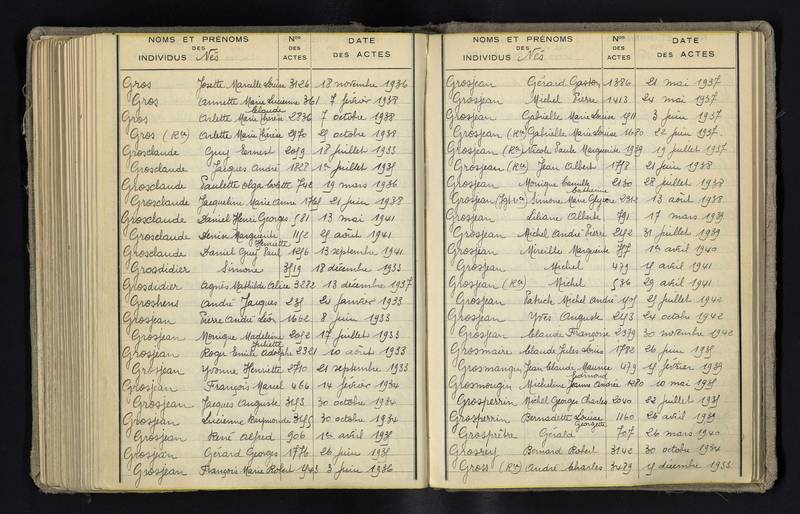 NOMS ET PRÉNOMS
DES
INDIVIDUS Nés
Nos
DES
ACTES
DATE
DES ACTES
Gros Josette Marcelle Louise 3126 18 novembre 1936
Gros Annette Marie Lucienne 361 7 février 1938
Claude
Gros Arlette Marie Thérèse 2836 7 octobre 1938
Gros (Rtn) Arlette Marie Thérèse 2970 25 octobre 1938
Grosclaude Guy Ernest 2059 18 juillet 1933
Grosclaude Jacques André 1828 1er juillet 1935
Grosclaude Paulette Olga Colette 742 19 mars 1936
Grosclaude Jacqueline Marie Anne 1765 21 juin 1938
Grosclaude Daniel Henri Georges 581 13 mai 1941
Grosclaude Denise Marguerite 1152 25 août 1941
Henriette
Grosclaude Daniel Guy Paul 1256 13 septembre 1941
Grosdidier Simone 3519 18 décembre 1933
Grosdidier Agnès Mathilde Alice 3282 13 décembre 1937
Groshens André Jacques 235 24 janvier 1933
Grosjean Pierre André Léon 1662 8 juin 1933
Grosjean Monique Madeleine 2052 17 juillet 1933
Juliette
Grosjean Roger Emile Adolphe 2321 10 août 1933
Grosjean Yvonne Henriette 2710 21 septembre 1933
Grosjean François Marcel 464 14 février 1934
Grosjean Jacques Auguste 3153 30 octobre 1934
Grosjean Lucienne Raymonde 3155 30 octobre 1934
Grosjean René Alfred 906 1er avril 1935
Grosjean Gérard Georges 1776 26 juin 1935
Grosjean François Marie Robert 1543 3 juin 1936
NOMS ET PRÉNOMS
DES
INDIVIDUS Nés
Nos
DES
ACTES
DATE
DES ACTES
Grosjean Gérard Gaston 1386 21 mai 1937
Grosjean Michel Pierre 1413 24 mai 1937
Grosjean Gabrielle Marie Louise 1511 3 juin 1937
Grosjean (Rtn) Gabrielle Marie Louise 1680 22 juin 1937
Grosjean (Rtn) Nicole Paule Marguerite 1929 19 juillet 1937
Grosjean (Rtn) Jean Albert 1758 21 juin 1938
Grosjean Monique Camille 2130 28 juillet 1938
Catherine
Grosjean Simone Marie 2312 13 août 1938
Grosjean Liliane Alberte 791 17 mars 1939
Grosjean Michel André Pierre 2152 31 juillet 1939
Grosjean Mireille Marguerite 757 1er avril 1940
Grosjean Michel 479 15 avril 1941
Grosjean (Rtn) Michel 536 29 avril 1941
Grosjean Patrick Michel André 1505 25 juillet 1942
Grosjean Yves Auguste 2153 24 octobre 1942
Grosjean Claude Françoise 2379 30 novembre 1942
Grosmaire Claude Jules Louis 1782 26 juin 1935
Grosmangin Jean Claude Maurice 479 15 février 1939
Grosmougin Micheline Jeanne Andrée 1280 10 mai 1935
Grosperrin Michel Georges Charles 2040 22 juillet 1935
Grosperrin Bernadette Louise 1160 26 avril 1939
Georgette
Grosprêtre Gérald 707 26 mars 1940
Grosrey Bernard Robert 3142 30 octobre 1934
Gross (Rtn) André Charles 3489 15 décembre 1933